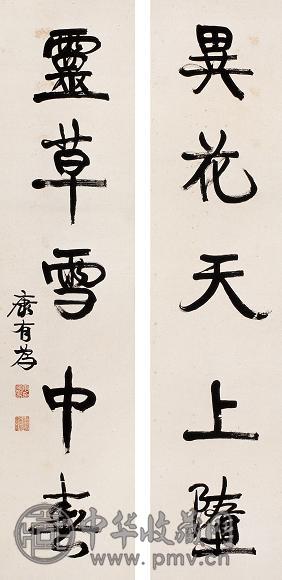 異花天上墮
靈草雪中春
康有為
中华收藏网
www.pmv.cn